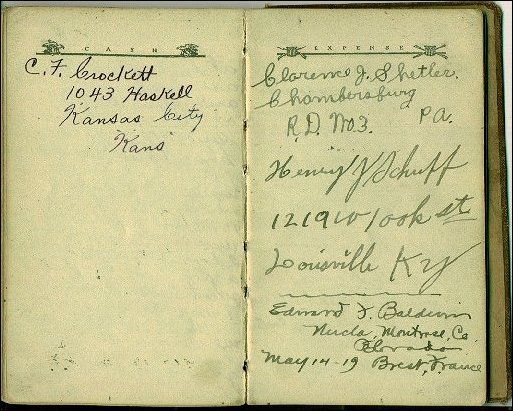 CASH
C. F. Crockett
1043 Haskell
Kansas City
Kans
EXPENSE
Clarence J. Shetler.
Chambersburg
R.D. No 3. PA.
Henry J Schuff
1219 W Oak st
Louisville Ky
Edward F. Baldwin
Nucla, Montrose, Co.
Colorado
May 14-19 Brest, France